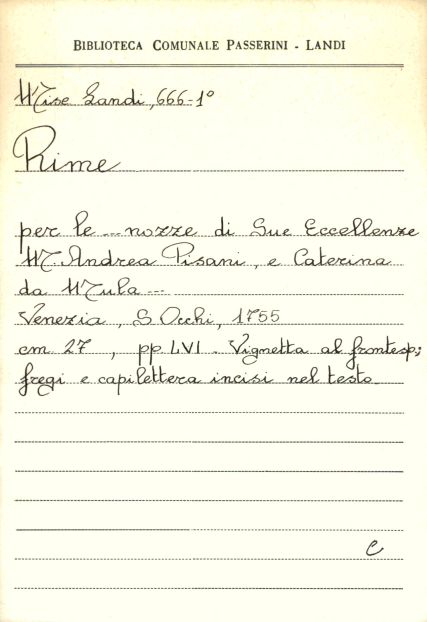 BIBLIOTECA COMUNALE PASSERINI - LANDI
Misc Landi, 666-1°
Rime
per le ... nozze di Sue Eccellenze
M. Andrea Pisani, e Caterina
da Mula ...
Venezia, S. Occhi, 1755
cm. 27, pp. LVI. Vignetta al frontesp;
fregi e capilettera incisi nel testo.
C